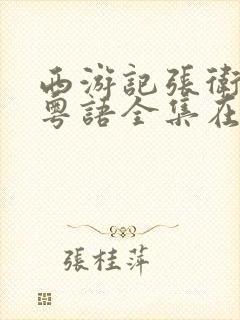 西游記張衛
粵語全集在
張桂萍